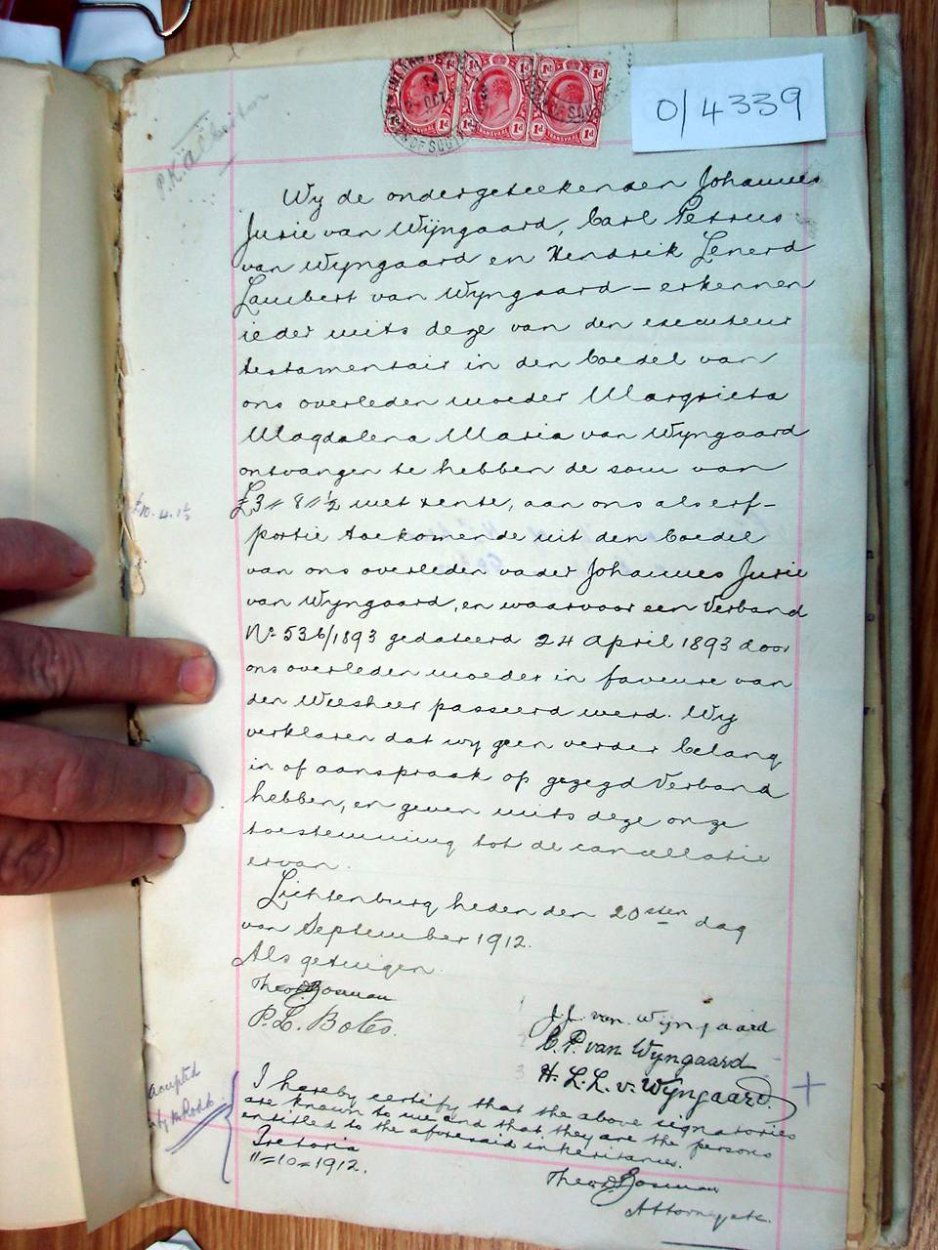 0/4339
1d 1d 1d 1d
TRANSVAAL
OCT
OF SOUTH
P.K.
Wy de ondergeteekenden Johannes
Jurie van Wÿngaard, Carl Petrus
van Wyngaard en Hendrik Lenerd
Lambert van Wyngaard – erkennen
ieder mits deze van den executeur
testamentair in den boedel van
ons overleden moeder Margrieta
Magdalena Maria van Wyngaard
ontvangen te hebben de som van
£3 " 8 " ½ met rente, aan ons als erf-
portie toekomende uit den boedel
van ons overleden vader Johannes Jurie
van Wyngaard, en waarvoor een Verband
No 536/1893 gedateerd 24 April 1893 door
ons overleden moeder in faveure van
den Weesheer passeerd werd. Wy
verklaren dat wy geen verder belang
in of aanspraak op gezegd Verband
hebben, en geven mits deze onze
toestemming tot de cancellatie
ervan.
Lichtenburg heden den 20sten dag
van September 1912.
Als getuigen.
Theo Bosman
P. L. Botes.
J. J. van Wyngaard
C. P. van Wyngaard
H. L. L. v. Wyngaard.
£10. 4. 1½
accepted
I hereby certify that the above signatories
are known to me and that they are the persons
entitled to the aforesaid inheritances.
Pretoria
11=10=1912.
Theo Bosman
Attorney etc.